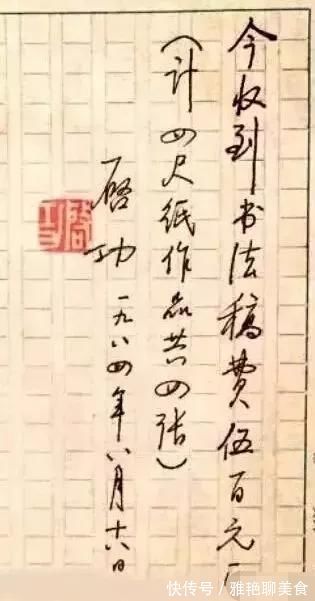 今收到书法稿费伍百元
（计四尺纸作品共四张）
启功
一九八四年八月十六日
启功
快传号／雅艳聊美食